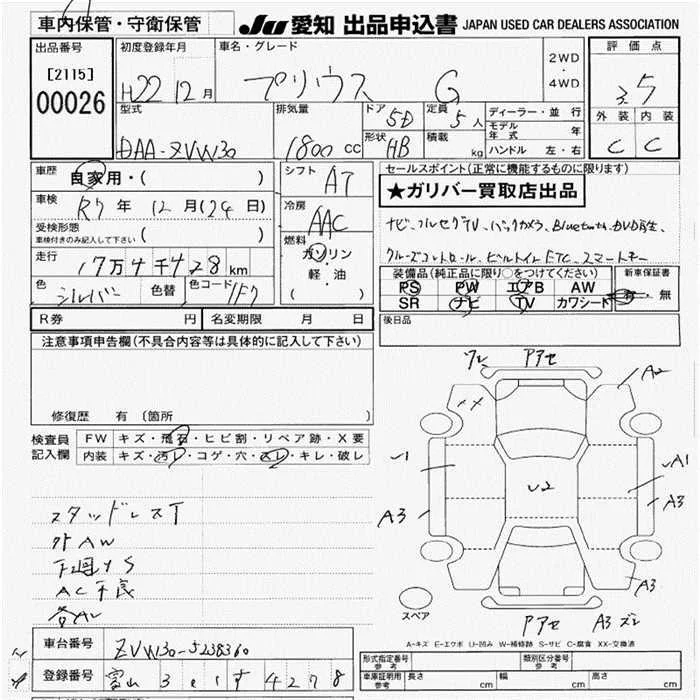 車内保管・守衛保管
JU 愛知 出品申込書 JAPAN USED CAR DEALERS ASSOCIATION
出品番号 初度登録年月 車名・グレード 2WD・4WD 評価点
[2115]
00026
H22 12月 プリウス G 3.5
型式 排気量 ドア 5D 定員 5人 ディーラー・並行 外装 内装
モデル年式 年
DAA-ZVW30 1800cc 形状 HB 積載 kg ハンドル 左・右 C C
車歴 自家用・( ) シフト AT セールスポイント(正常に機能するものに限ります)
★ガリバー買取店出品
車検 R7年 12月(24日) 冷房 AAC
受検形態
車検付きのみ記入して下さい ( )
ナビ、フルセグTV、バックカメラ、Bluetooth、DVD再生、
走行 17万4千428km 燃料 ガソリン 軽・油 ( )
クルーズコントロール、ビルトインETC、スマートキー
色 シルバー 色替 色コード 1F7
装備品(純正品に限り○をつけてください) 新車保証書
PS PW エアB AW 有・無
SR ナビ TV カワシート
R券 円 名変期限 月 日 後日品
注意事項申告欄(不具合内容等は具体的に記入して下さい)
修復歴 有 〔箇所 〕
検査員記入欄 FW キズ・飛石・ヒビ割・リペア跡・X要
内装 キズ・汚レ・コゲ・穴・スレ・キレ・破レ
ワレ アアセ A2
U1 U2 UA1
A3 A3
スタッドレスT
外AW
下廻りS
AC不良
A3
スペア アアセ A3 ズレ
A-キズ E-エクボ U-凹み W-補修跡 S-サビ C-腐食 XX-交換済
車台番号 ZVW30-5238360
登録番号 富山 301 す 4278
形式指定番号 参考 類別区分番号 参考
車庫証明用 参考 長さ cm 幅 cm 高さ cm